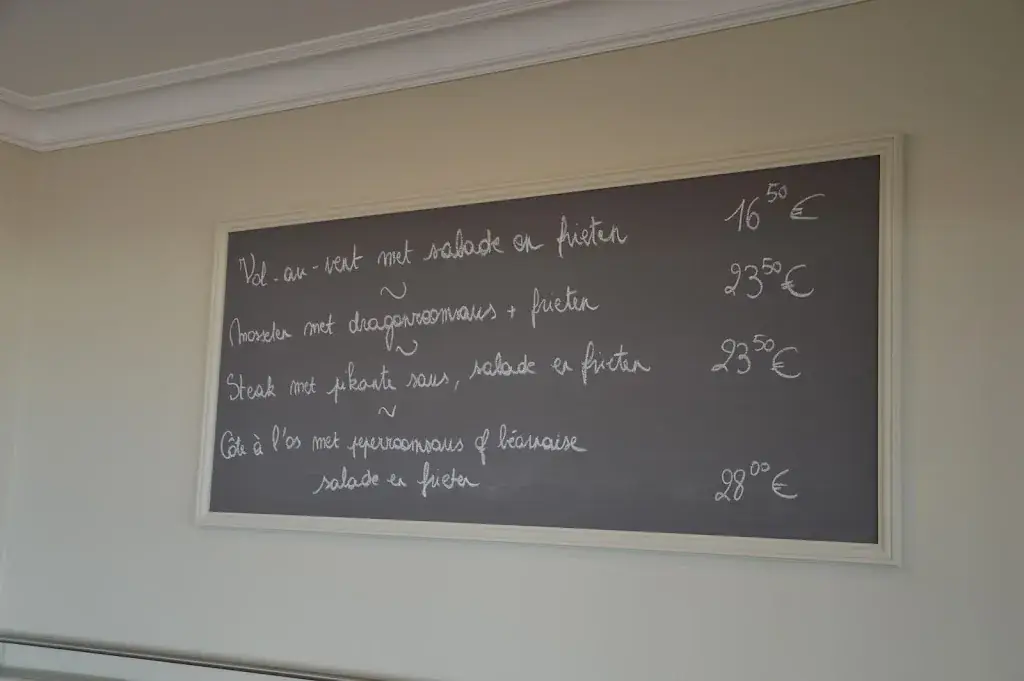 Vol-au-vent met salade en frieten 16⁵⁰ €
Mosselen met dragonroomsaus + frieten 23⁵⁰ €
Steak met pikante saus, salade en frieten 23⁵⁰ €
Côte à l'os met peperroomsaus of béarnaise
salade en frieten 28⁰⁰ €